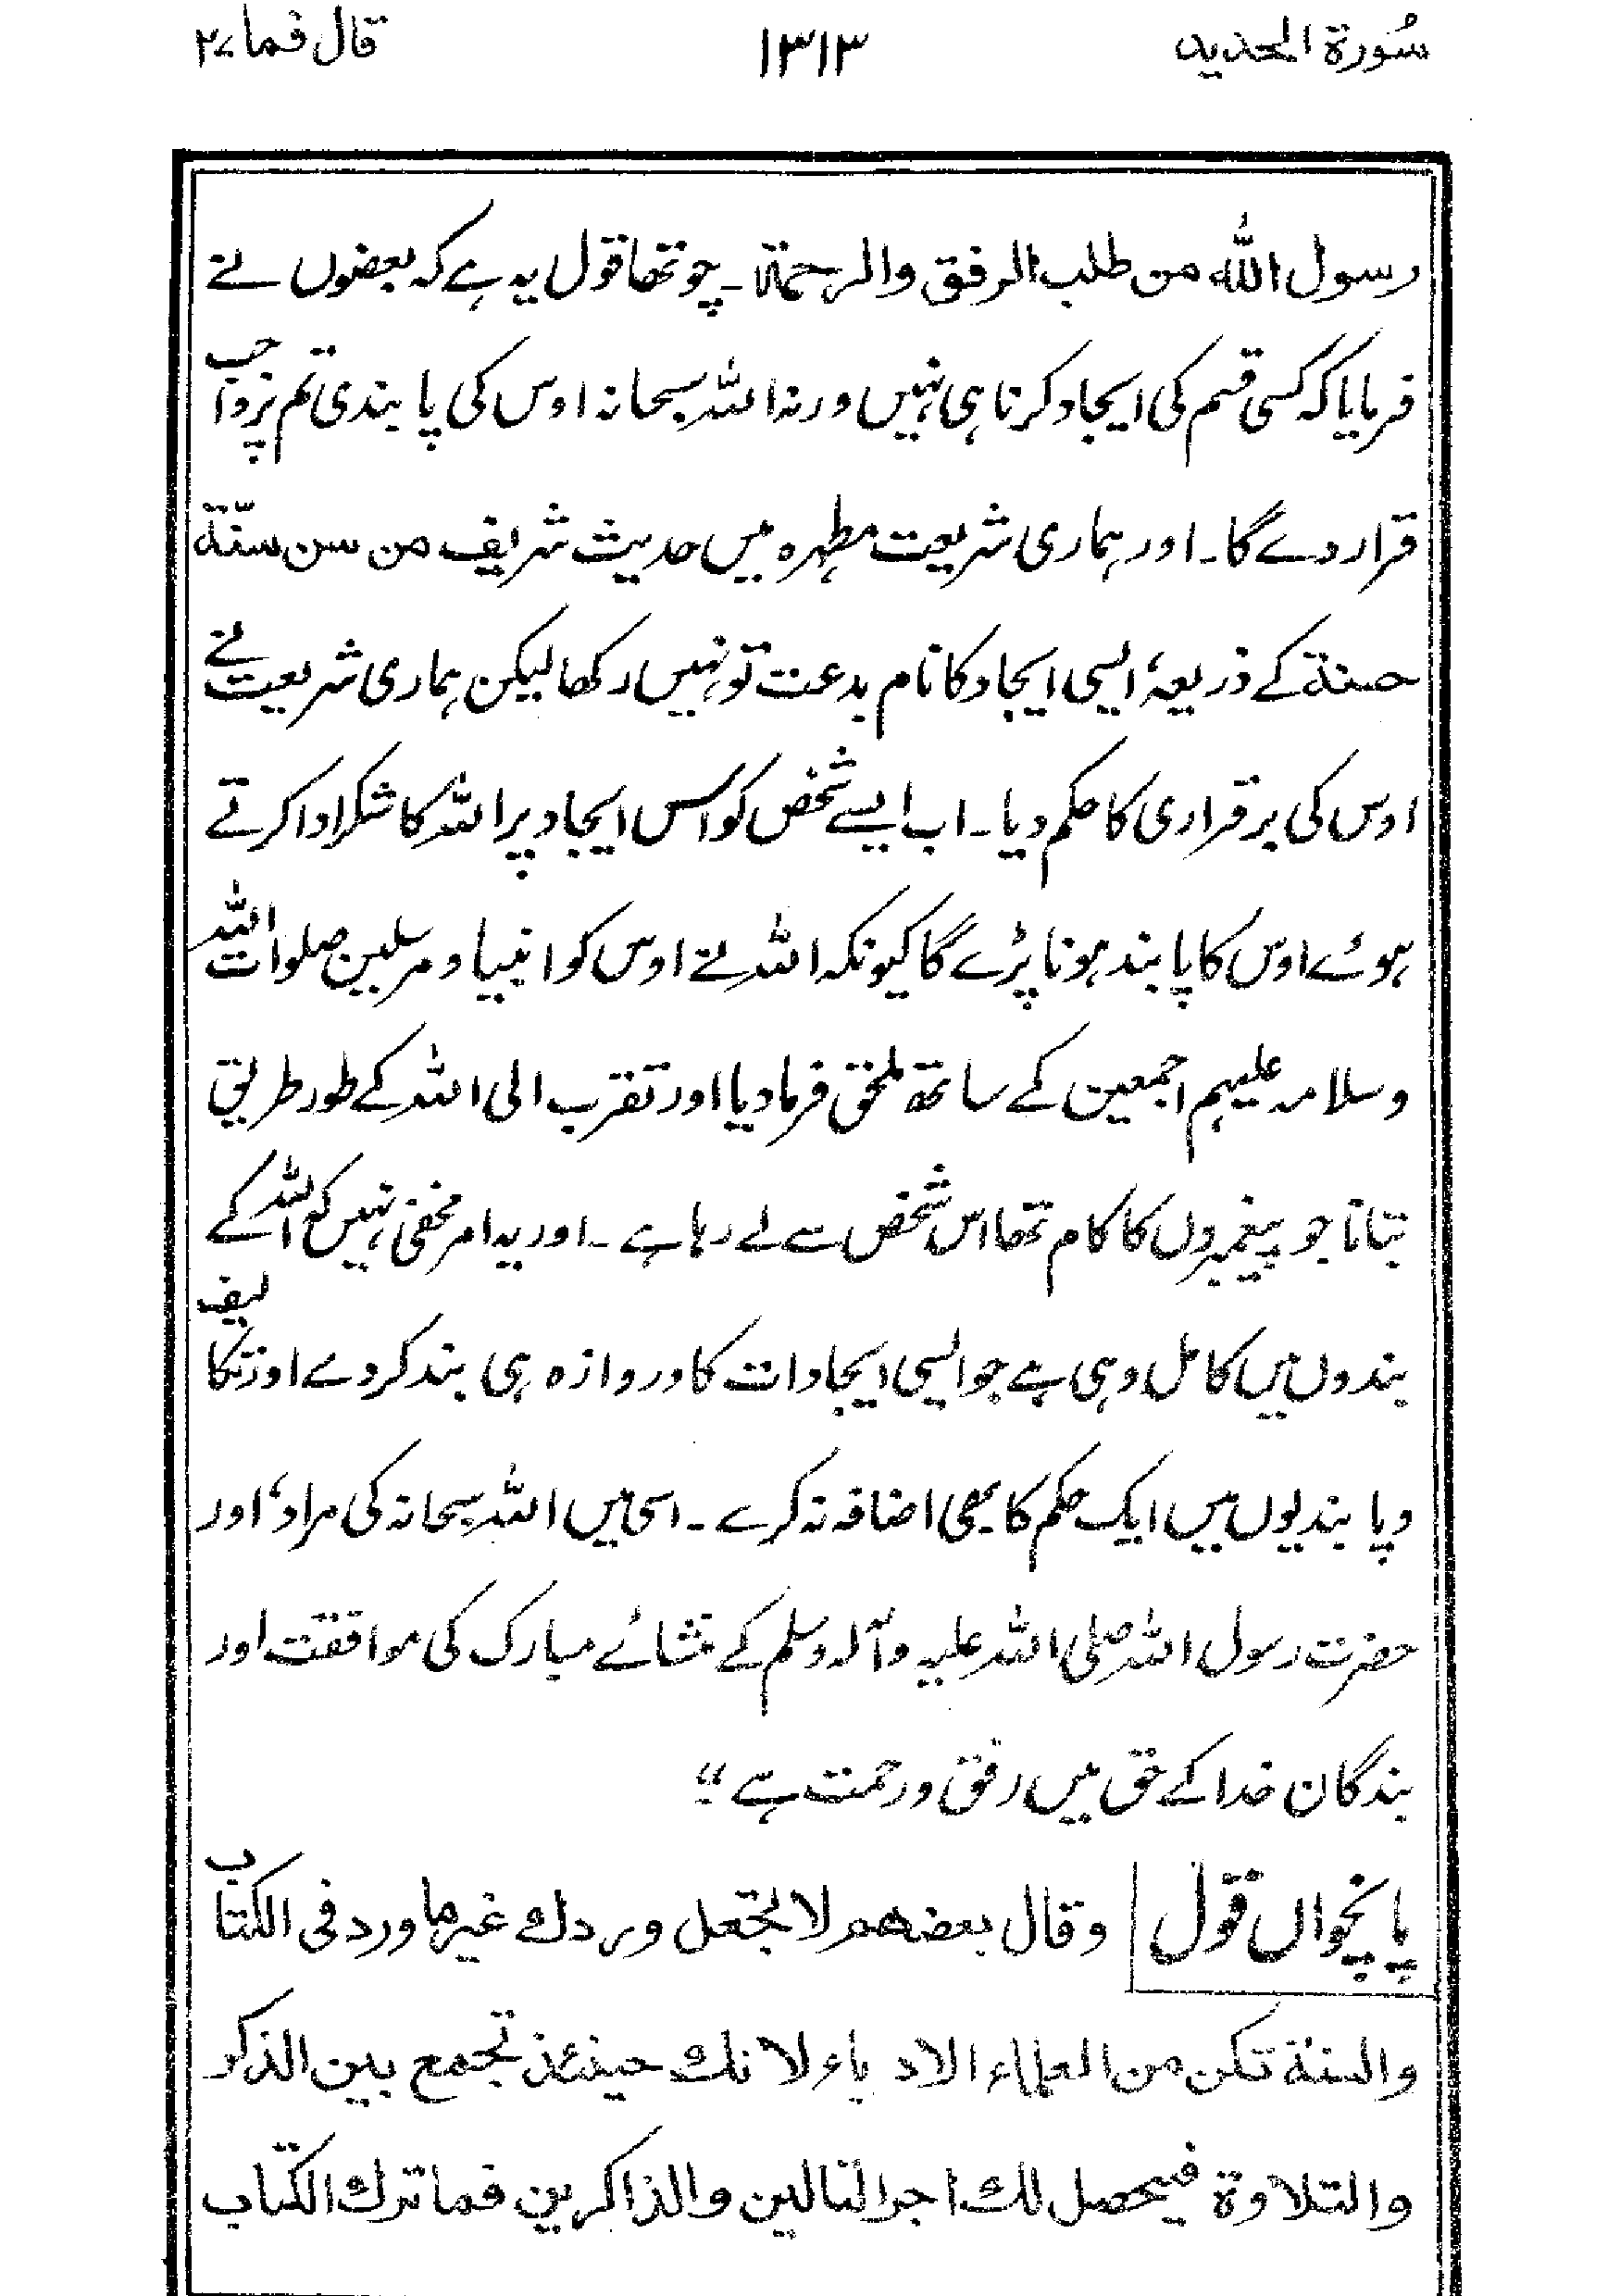 سُورة الحديد ١٣١٣ قال فما ٢٧
رسول الله من طلب الرفق والرحمة ۔ چوتھا قول یہ ہے کہ بعضوں نے
فرمایا کہ کسی قسم کی ایجاد کرنا ہی نہیں ورنہ اللہ سبحانہ اوس کی پابندی تم پر واجب
قرار دے گا۔ اور ہماری شریعت مطہرہ میں حدیث شریف من سن سنّة
حسنة کے ذریعہ ایسی ایجاد کا نام بدعت تو نہیں رکھا لیکن ہماری شریعت نے
اوس کی برقراری کا حکم دیا ۔ اب ایسے شخص کو اس ایجاد پر اللہ کا شکر ادا کرتے
ہوئے اوس کا پابند ہونا پڑے گا کیونکہ اللہ نے اوس کو انبیا و مرسلین صلوات اللہ
وسلامہ علیہم اجمعین کے ساتھ ملحق فرما دیا اور تقرب الی اللہ کے طور طریق
بتانا جو پیغمبروں کا کام تھا اس شخص سے لے رہا ہے ۔ اور یہ امر مخفی نہیں کہ اللہ کے
بندوں میں کامل وہی ہے جو ایسی ایجادات کا دروازہ ہی بند کر دے اور تکالیف
و پابندیوں میں ایک حکم کا بھی اضافہ نہ کرے ۔ اسی میں اللہ سبحانہ کی مراد، اور
حضرت رسول اللہ صلی اللہ علیہ وآلہ وسلم کے منشائے مبارک کی موافقت اور
بندگان خدا کے حق میں رفق و رحمت ہے "
پانچواں قول وقال بعضهم لا تجعل وردك غير ما ورد في الكتاب
والسنة تكن من العلماء الادباء لانك حينئذ تجمع بين الذكر
والتلاوة فيحصل لك اجر التالين والذاكرين فما ترك الكتاب